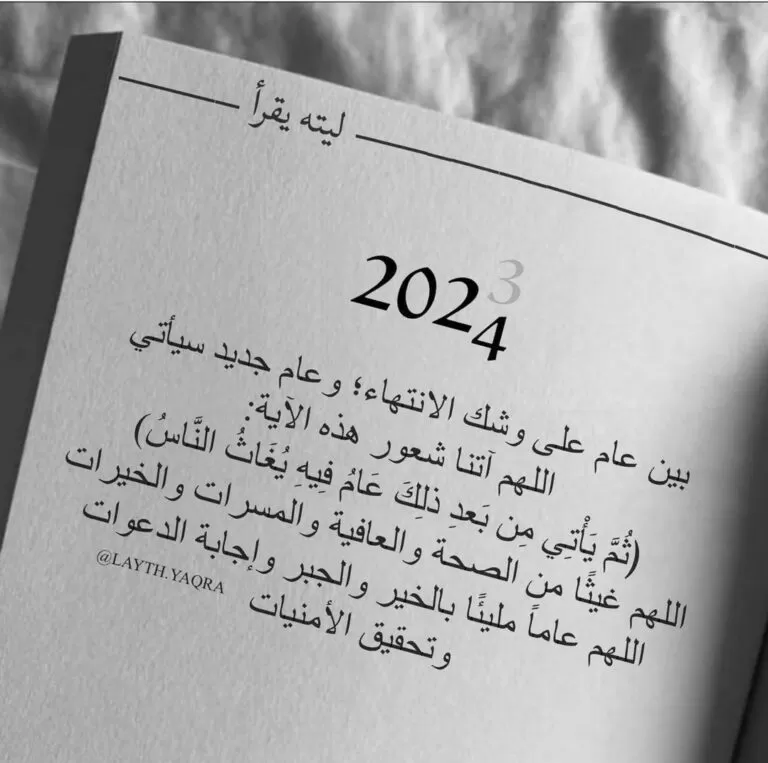 ليته يقرأ
2024
3
بين عام على وشك الانتهاء؛ وعام جديد سيأتي
اللهم آتنا شعور هذه الآية:
(ثُمَّ يَأْتِي مِن بَعدِ ذلِكَ عَامُ فِيهِ يُغَاثُ النَّاسُ)
اللهم غيثًا من الصحة والعافية والمسرات والخيرات
اللهم عاماً مليئًا بالخير والجبر وإجابة الدعوات
وتحقيق الأمنيات
@LAYTH.YAQRA